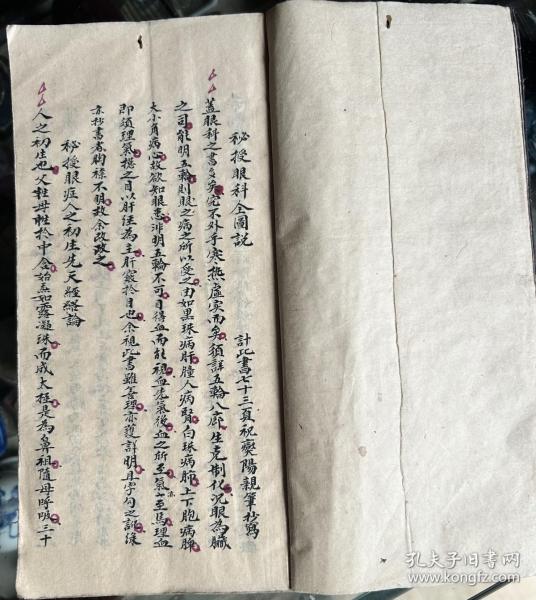 秘授眼科全圖説
計此書七十三頁祝奭陽親筆抄寫
蓋眼科之書多矣究不外乎寒熱虛实而矣須詳五輪八廓生克制化况眼為臟
之司能明五輪則眼之病之所以受之由如黑珠病肝瞳人病腎白珠病肺上下胞病脾
大小角病心故欲知眼患非明五輪不可目得血而能視血充氣後血之所至氣亦至焉理血
即須理氣揔之目以肝経為主肝竅於目也余視此書雖善理亦護詳明且字句之訛
亦抄書者胸襟不明故余改政之
秘授眼症人之初生先天經絡論
人之初生也父牲母牲於中含始然如露凝珠而成太極是為鼻祖隨母呼吸三十
孔夫子旧书网
www.kongfz.com